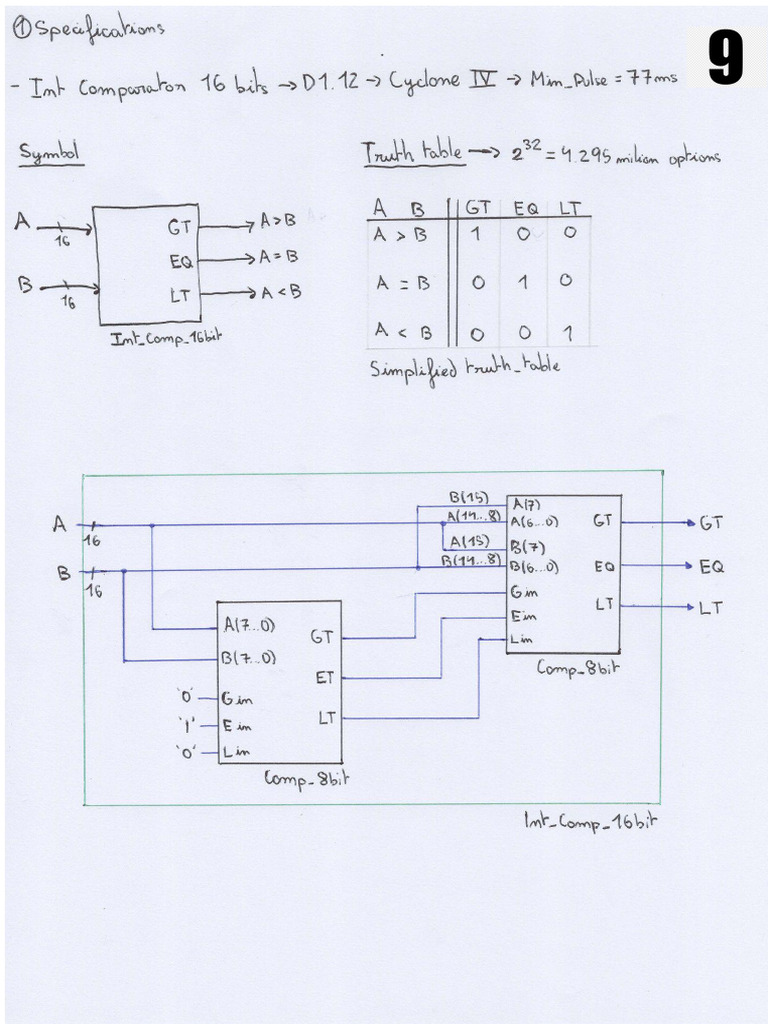 ① Specifications
9
- Int Comparator 16 bits → D1.12 → Cyclone IV → Min_Pulse = 77ns
Symbol
Truth table → 2^32 = 4.295 milion options
A 16
B 16
GT A > B
EQ A = B
LT A < B
Int_Comp_16bit
A B GT EQ LT
A > B 1 0 0
A = B 0 1 0
A < B 0 0 1
Simplified truth_table
A 16
B 16
B(15) A(7)
A(14...8) A(6...0) GT GT
A(15) B(7)
B(14...8) B(6...0) EQ EQ
Gin
Ein LT LT
Lin
Comp_8bit
A(7...0) GT
B(7...0)
ET
'0' Gin
'1' Ein LT
'0' Lin
Comp_8bit
Int_Comp_16bit